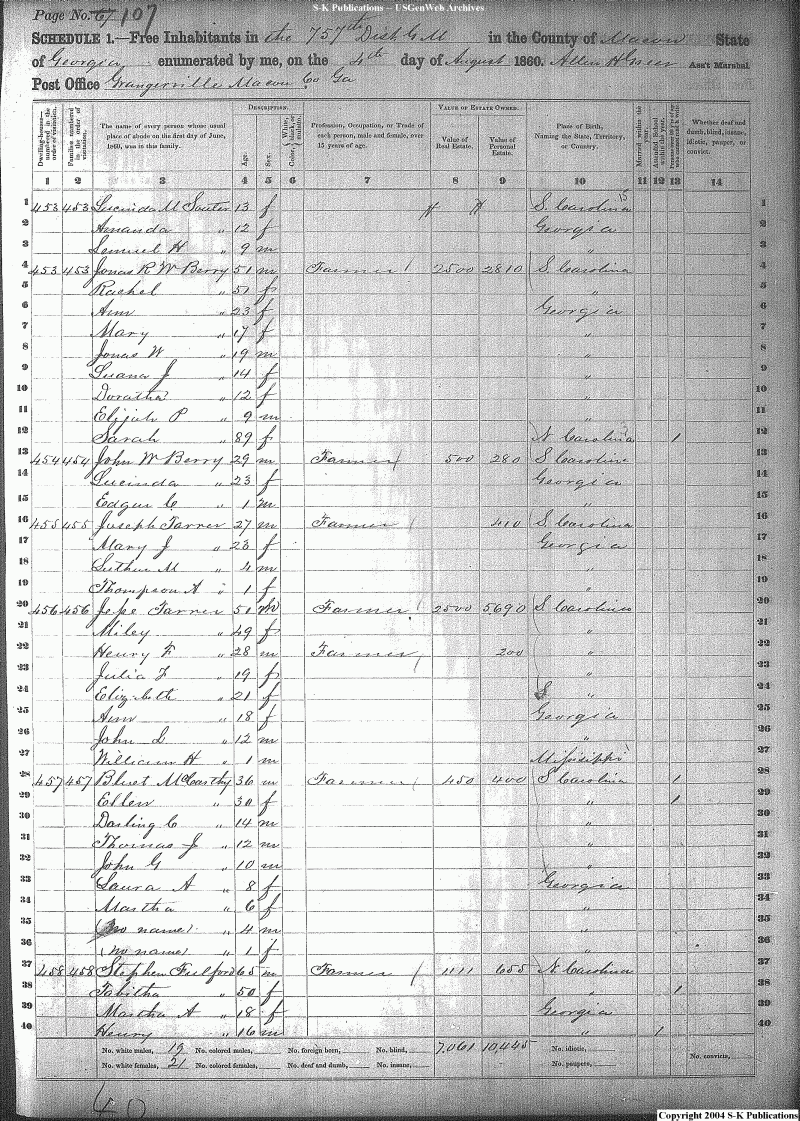 S-K Publications -- USGenWeb Archives
Page No. 67 107
SCHEDULE 1.—Free Inhabitants in the 757th Dist G.M in the County of Macon State
of Georgia enumerated by me, on the 4th day of August 1860. Allen H Greer Ass't Marshal
Post Office Grangerville Macon Co Ga
DESCRIPTION. VALUE OF ESTATE OWNED.
Dwelling-houses—numbered in the order of visitation. Families numbered in the order of visitation. The name of every person whose usual place of abode on the first day of June, 1860, was in this family. Age. Sex. Color, White, black, or mulatto. Profession, Occupation, or Trade of each person, male and female, over 15 years of age. Value of Real Estate. Value of Personal Estate. Place of Birth, Naming the State, Territory, or Country. Married within the year. Attended School within the year. Whether deaf and dumb, blind, insane, idiotic, pauper, or convict.
1 2 3 4 5 6 7 8 9 10 11 12 13 14
1 453 453 Lucinda M Souter 13 f " " S Carolina 15 1
2 Amanda " 12 f Georgia 2
3 Semuel H " 9 m " 3
4 453 453 Jonas R W Berry 51 m Farmer 2500 2810 S Carolina 4
5 Rachel " 51 f " 5
6 Ann " 23 f Georgia 6
7 Mary " 17 f " 7
8 Jonas W " 19 m " 8
9 Luana J " 14 f " 9
10 Doratha " 12 f " 10
11 Elijah P " 9 m " 11
12 Sarah " 89 f N Carolina 1 12
13 454 454 John W Berry 29 m Farmer 500 280 S Carolina 13
14 Lucinda " 23 f Georgia 14
15 Edgar C " 1 m " 15
16 455 455 Joseph Tarrer 27 m Farmer 410 S Carolina 16
17 Mary J " 23 f Georgia 17
18 Luther M " 4 m " 18
19 Thompson A " 1 f " 19
20 456 456 Jepe Tarrer 51 m Farmer 2500 5690 S Carolina 20
21 Miley " 49 f " 21
22 Henry F " 28 m Farmer 200 " 22
23 Julia F " 19 f " 23
24 Elizabeth " 21 f S " 24
25 Ann " 18 f Georgia 25
26 John L " 12 m " 26
27 William H " 1 m Missisippi 27
28 457 457 Bluet McCarthy 36 m Farmer 450 400 S Carolina 1 28
29 Ellen " 30 f " 1 29
30 Darling C " 14 m " 30
31 Thomas J " 12 m " 31
32 John G " 10 m " 32
33 Laura A " 8 f Georgia 33
34 Martha " 6 f " 34
35 (No name) " 4 m " 35
36 (No name) " 1 f " 36
37 458 458 Stephen Fulford 65 m Farmer 1111 655 N Carolina 37
38 Tabitha " 50 f " 1 38
39 Martha A " 18 f Georgia 39
40 Henry " 16 m " 1 40
No. white males, 19 No. colored males, No. foreign born, No. blind, 7,061 10,445 No. idiotic, No. convicts,
No. white females, 21 No. colored females, No. deaf and dumb, No. insane, No. paupers,
40
Copyright 2004 S-K Publications